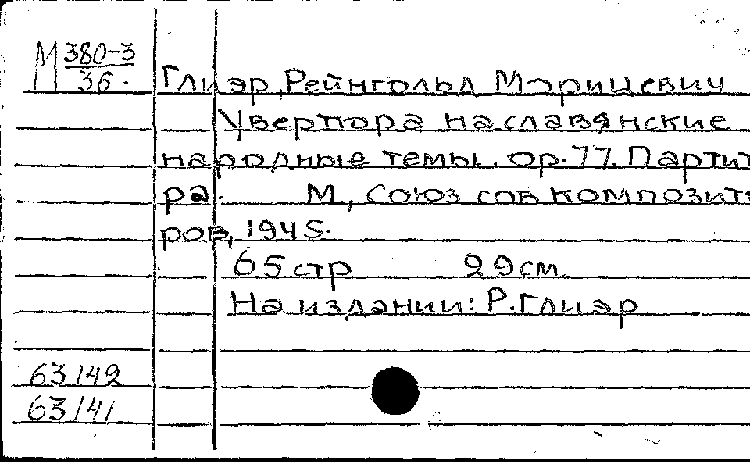 М 380-3
36.
Глиэр, Рейнгольд Морицевич
Увертюра на славянские
народные темы. ор. 77. Партит
ра. М., Союз сов композит
ров, 1945.
65 стр 29 см.
На издании: Р. Глиэр
63142
63141